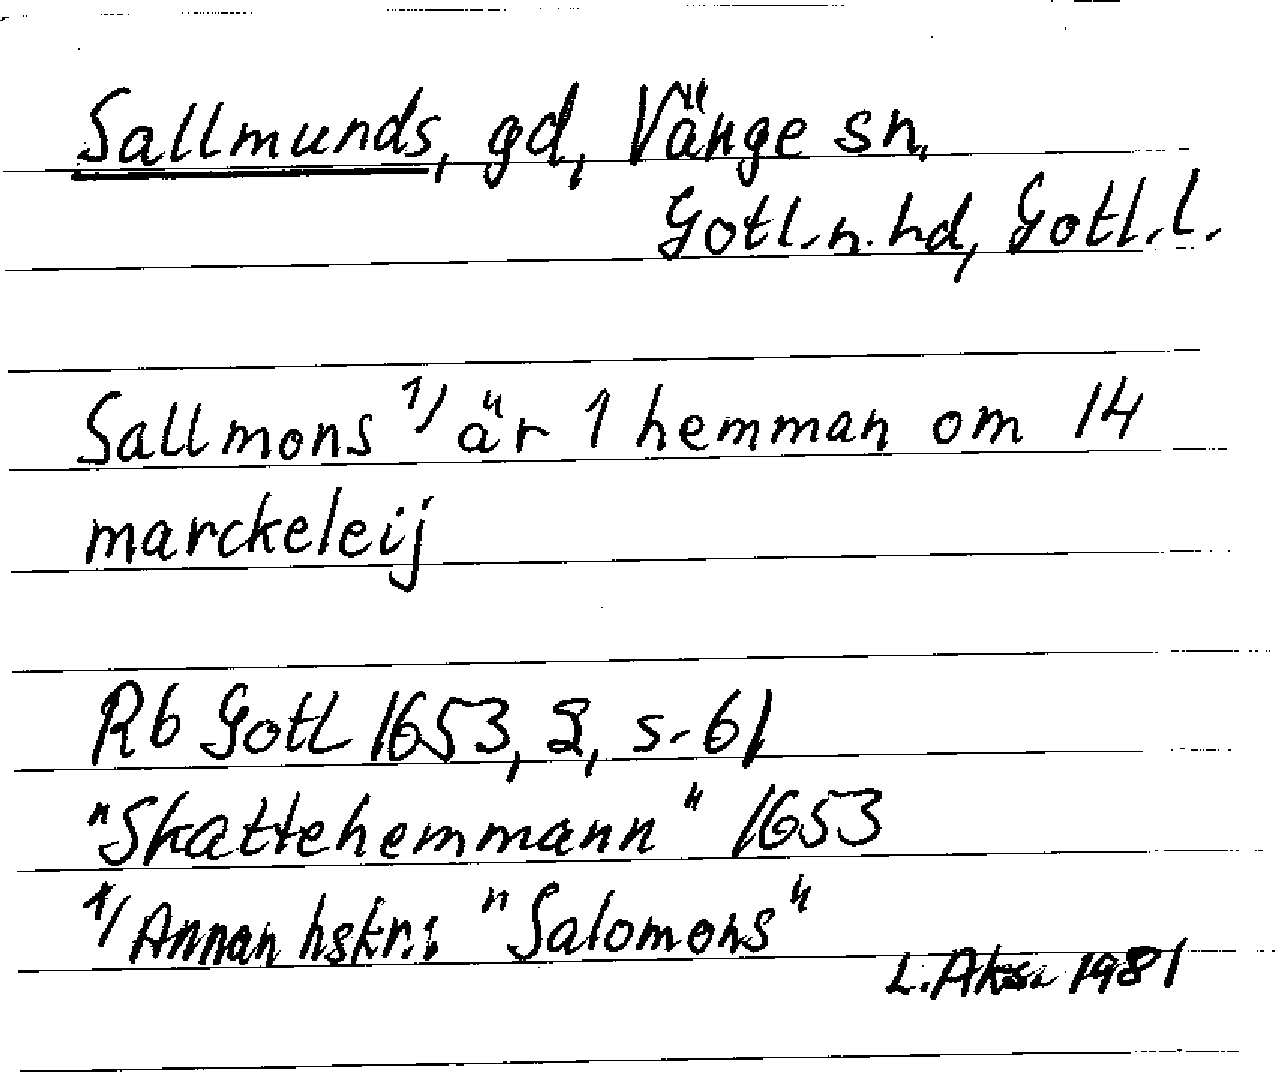 Sallmunds, gd, Vänge sn,
Gotl. n. hd, Gotl. l.
Sallmons 1/ är 1 hemman om 14
marckeleij
Rb Gotl 1653, 2, s. 61
"Skattehemmann" 1653
1/ Annan hskr.: "Salomons"
L. Aksa 1981